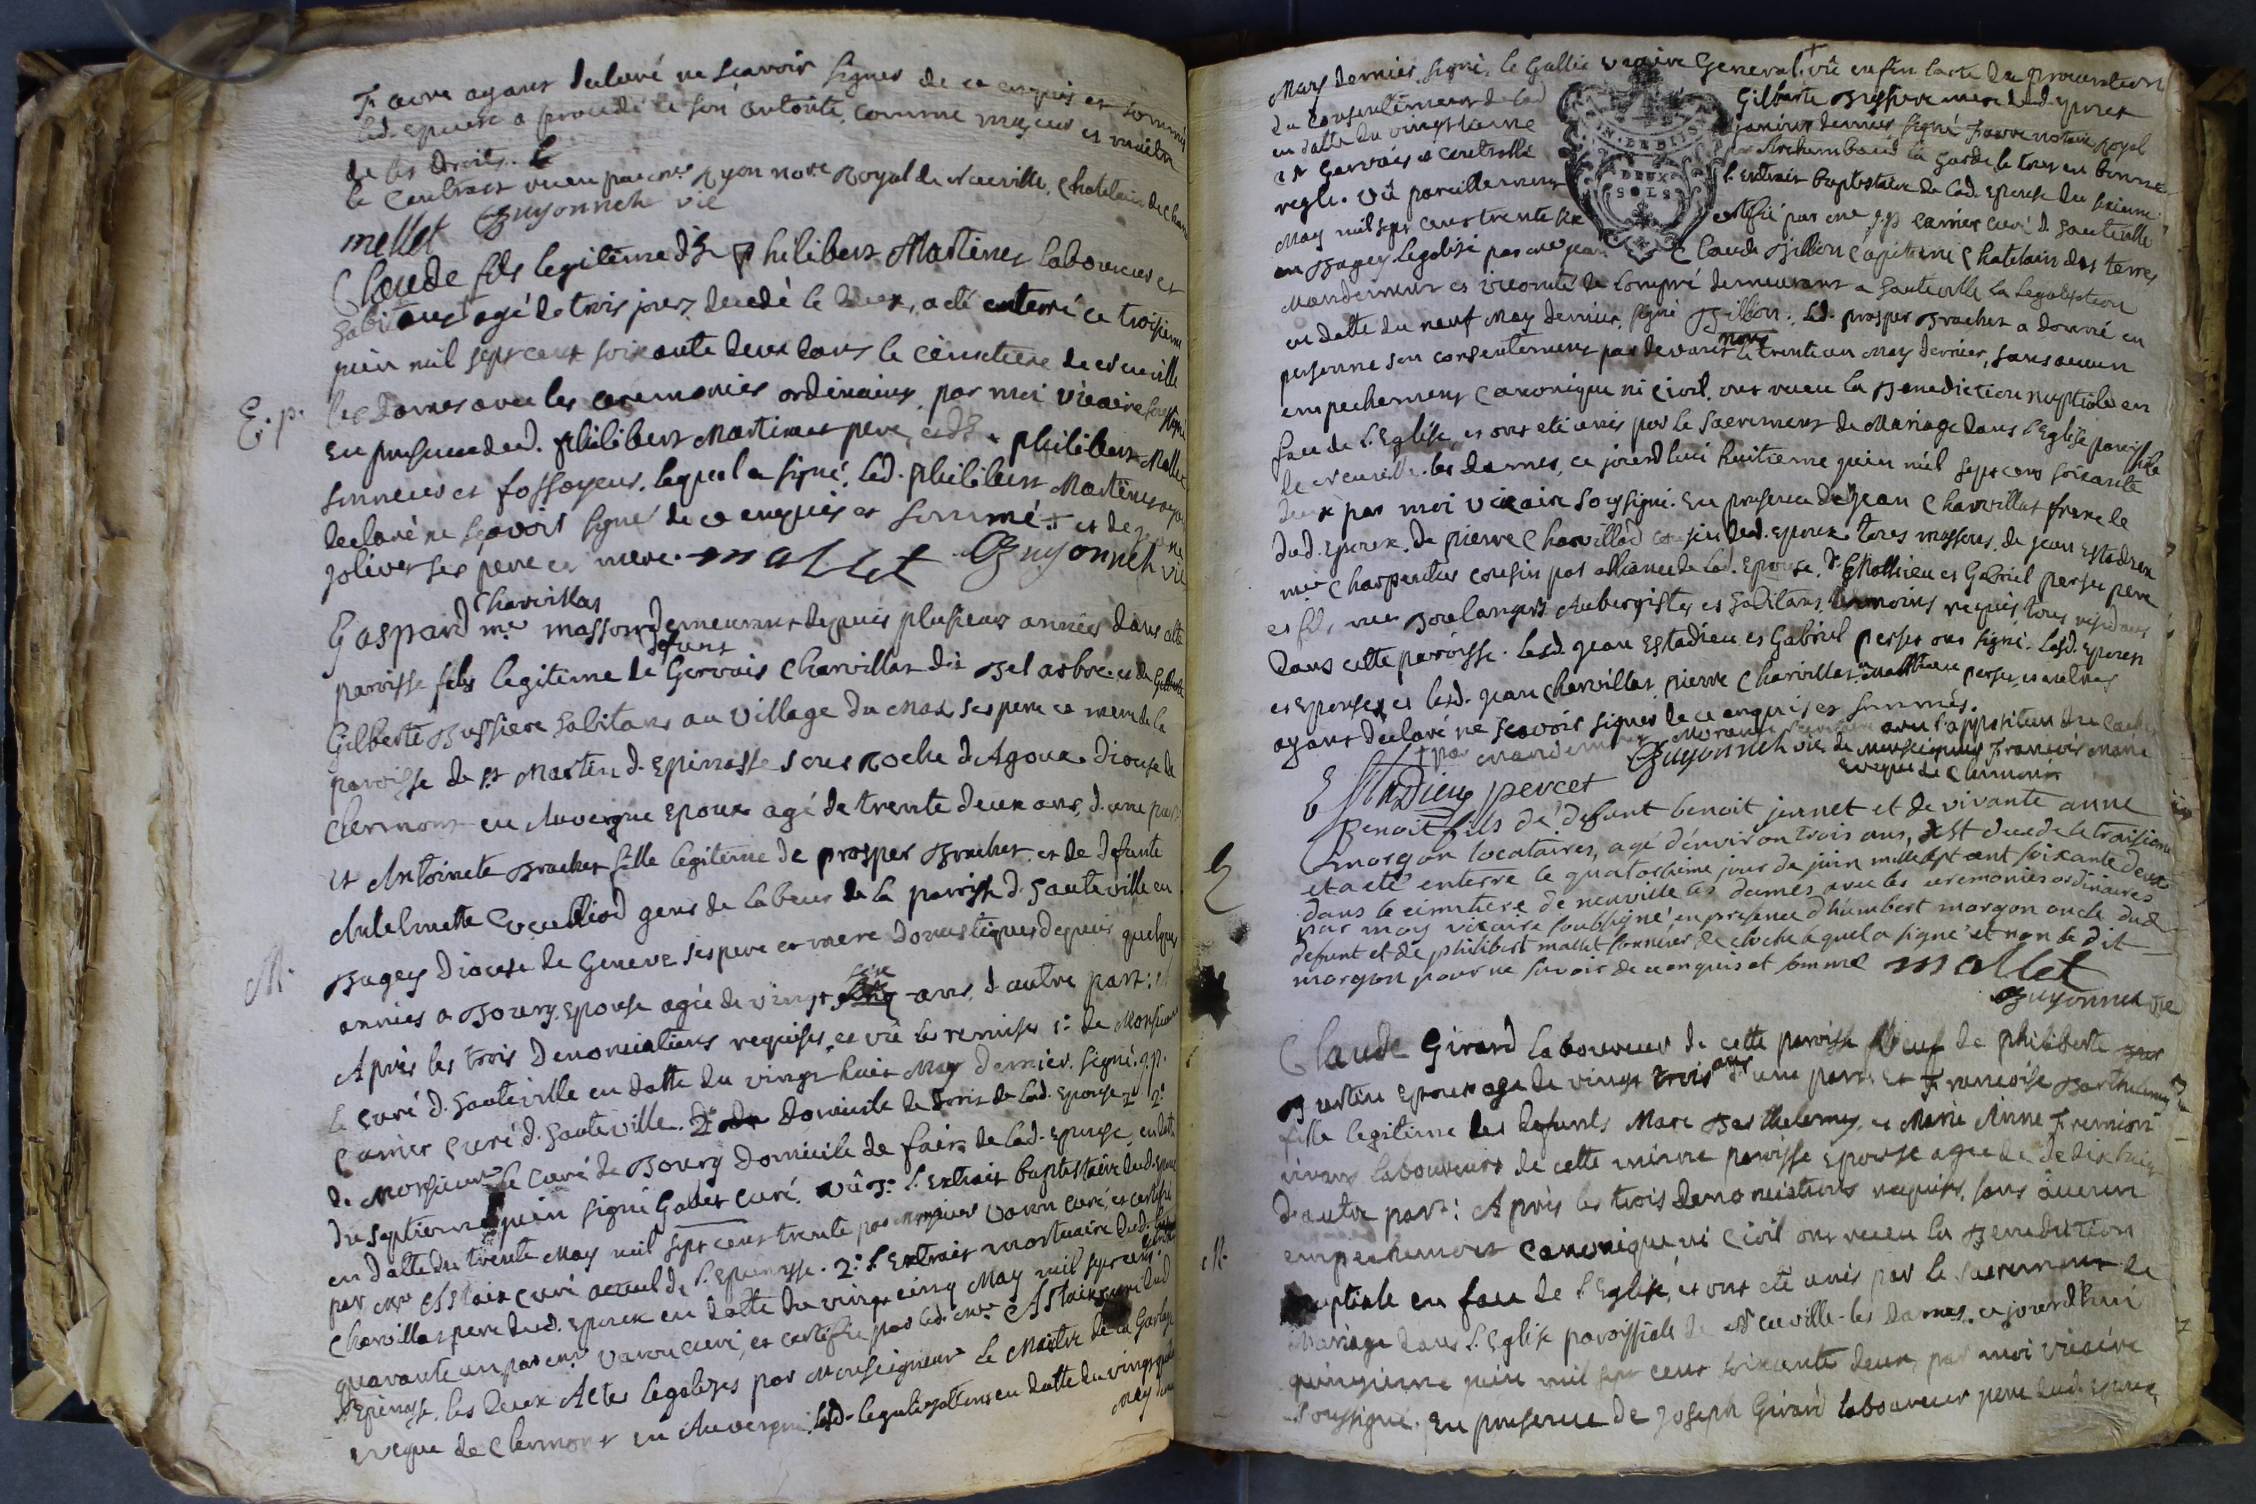 ayant declaré ne scavoir signer de ce enquis et sommé
led. Epoux a procedé de son autorité, comme majeur et maitre
de ses droits.
le Contract receu par me Ryon nore Royal de Neuville, Chatelain de
mellet Guyonnet vic
Claude fils legitime d'h. philibert Martinet laboureur et
habitant agé de trois jours, decedé le deux, a eté enterré ce troisieme
juin mil sept cent soixante deux dans le cimetiere de Neuville
les dames avec les ceremonies ordinaires, par moi vicaire soussigné
E. p.
En presence dud. philibert Martinet pere, et d'h. philibert Mallet
sonneur et fossoyeur, lequel a signé, led. philibert Martinet ayant
declaré ne scavoir signer de ce enquis et sommé. et de
Jolivet ses pere et mere. mallet Guyonnet vic
Charvillat
Gaspard me masson demeurant depuis plusieurs années dans cette
defunt
paroisse fils legitime de Gervais Charvillat dit Bel arbre et de
Gilberte Bussiere habitans au village du Max ses pere et mere de la
paroisse de St Martin d'Epinasse sous Roche d'Agoux Diocese de
Clermont en Auvergne Epoux agé de trente deux ans, d'une part
et Antoinete Brachet fille legitime de prosper Brachet et de defunte
Antelmette gens de labeur de la paroisse d'hauteville en
M.
Bugey Diocese de Geneve ses pere et mere domestiques depuis quelques
six
années a Bourg, Epouse agée de vingt ans, d'autre part: et
Après les trois Denonciations requises, et vû les remises 1° de Monsieur
le curé d'hauteville en datte du vingt huit May dernier. signé. j.p.
Carrier curé d'hauteville. 2° domicile de droit de lad. Epouse 2°
de Monsieur le curé de Bourg domicile de fait de lad. Epouse, en datte
du septieme juin signé Gallet curé. vû 3° l'Extrait baptistaire dud. Epoux
en datte du trente May mil sept cent trente par Monsieur Varou curé, et certifié
par mr Astaix curé actuel de l'Epinasse. 2° l'Extrait mortuaire dud.
Charvillat pere dud. Epoux en datte du vingt cinq May mil sept cent
quarante un par mr Varou curé, et certifié par led. mr Astaix curé dud.
l'Epinasse, les deux Actes legalizés par Monseigneur le Maistre de la Garlaye
eveque de Clermont en Auvergne, lesd. legalisations en datte du vingt quatre
May
Mars dernier, signé, le Gallie vicaire General. vû enfin l'acte de procuration
du consentement de lad. Gilberte Bussiere mere dud. Epoux
en datte du vingt janvier dernier signé Faure notaire Royal
et controllé Archimbaud la Garde, le tout en bonne
regle. Vû pareillement l'Extrait baptistaire de lad. Epouse du sixieme
IN. DE DIST
DEUX
SOLS
May mil sept cent trente six certifié par me j.p. Carrier curé d'hauteville
en Bugey legalisé par me jean Claude Billion Capitaine Chatelain des terres
Mandement et vicomté de Lompné demeurant a hauteville la legalisation
en datte du neuf May dernier, signé Billion. led. prosper Brachet a donné en
nous
personne son consentement par devant le trente un May dernier, sans aucun
empechement Canonique ni Civil, ont receu la Benediction nuptiale en
face de l'Eglise, et ont eté unis par le Sacrement de Mariage dans l'Eglise paroissiale
de Neuville-les dames, ce jourd'hui huitieme juin mil sept cent soixante
deux par moi vicaire soussigné. En presence de Jean Charvillat frere
dud. Epoux, de pierre Charvillat cousin dud. Epoux tous massons, de jean Estadieu
me Charpentier cousin par alliance de lad. Epouse, d'h. Mathieu et Gabriel perset pere
et fils, Boulangers Aubergistes et habitans, temoins requis, tous residans
dans cette paroisse. lesd. jean Estadieu et Gabriel perset ont signé. lesd. Epoux
et Epouse, et lesd. jean Charvillat, pierre Charvillat, Mathieu perset, et autres
ayant declaré ne scavoir signer de ce enquis et sommés.
par mandement avec l'apposition du
Guyonnet vic. de Monseigneur François Marie
Eveque de Clermont
Estadieu percet
Benoit fils de defunt benoit jannet et de vivante anne
morgon locataires, agé d'environ trois ans, est decedé le troisieme
E
et a eté enterré le quatorsieme jour de juin mille sept cent soixante deux
dans le cimetiere de neuville les dames avec les ceremonies ordinaires
par moy vicaire soussigné en presence d'humbert morgon oncle dud.
defunt et de philibert mallet sonneur de cloche lequel a signé et non le dit
morgon pour ne savoir de ce enquis et sommé mallet
Guyonnet vic
Claude Girard laboureur de cette paroisse veuf de philiberte
ans
Bertin Epoux agé de vingt trois d'une part: Et Françoise Barthelemy
fille legitime des defunts Marc Barthelemy, et Marie Anne Fremion
vivans laboureurs de cette même paroisse Epouse agée de dix huit
d'autre part: Après les trois denonciations requises, sans aucun
M.
empechement Canonique ni Civil ont receu la Benediction
nuptiale en face de l'Eglise, et ont eté unis par le sacrement de
Mariage dans l'Eglise paroissiale de Neuville-les dames, ce jourd'hui
quinzieme juin mil sept cent soixante deux, par moi vicaire
soussigné. En presence de Joseph Girard laboureur pere dud. Epoux,